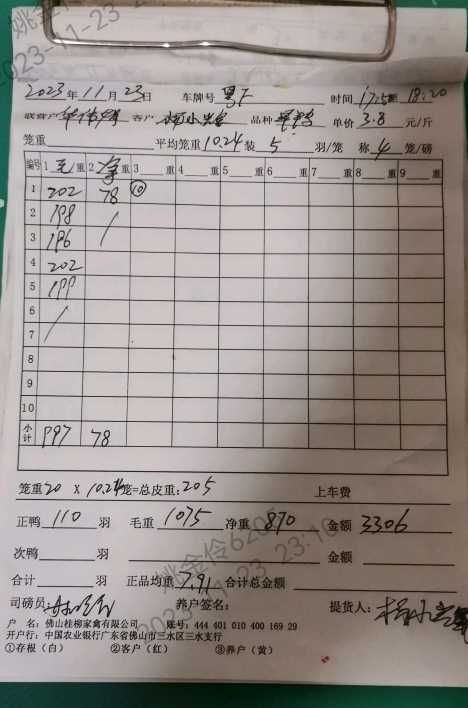 2023年11月23日 车牌号 粤F 时间 17:25 18:20
联营户 客户 品种 单价 3.8 元/斤
笼重 平均笼重 10.24 装 5 羽/笼 称 4 笼/磅
编号 1 毛 重 2 重 3 重 4 重 5 重 6 重 7 重 8 重 9 重
1 202 78 ⑩
2 198 /
3 196
4 202
5 199
6 /
7
8
9
10
小计 997 78
笼重 20 X 10.24 笼=总皮重: 205 上车费
正鸭 110 羽 毛重 1075 净重 870 金额 3306
次鸭 羽 金额
合计 羽 正品均重 7.91 合计总金额
司磅员 养户签名: 提货人:
户 名: 佛山桂柳家禽有限公司 账号: 444 401 0400 169 29
开户行: 中国农业银行广东省佛山市三水区三水支行
①存根(白) ②客户(红) ③养户(黄)
姚金伶6205
2023-11-23 23:10